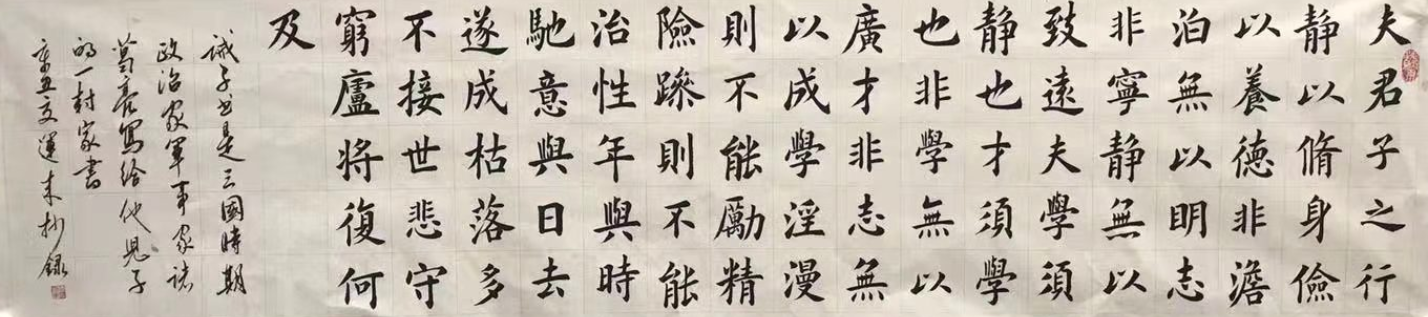 夫君子之行
静以脩身儉
以養德非澹
泊無以明志
非寧静無以
致遠夫學須
静也才須學
也非學無以
廣才非志無
以成學淫漫
則不能勵精
險躁則不能
治性年與時
馳意與日去
遂成枯落多
不接世悲守
窮廬將復何
及
誡子书是三國時期
政治家軍事家诸
葛亮寫给他児子
的一封家書
辛丑夏運来抄録